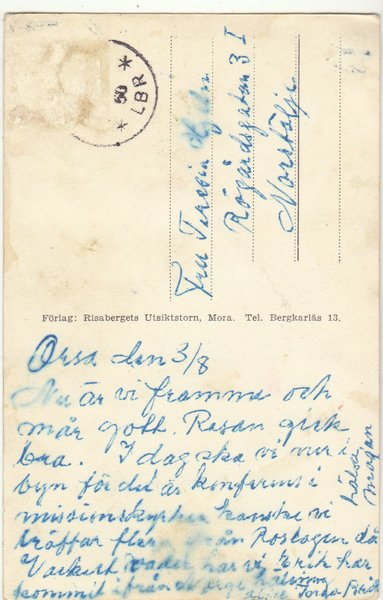 50
LBR
Fru Teresia
Rögårdsgatan 3 I
Norrtälje
Förlag: Risabergets Utsiktstorn, Mora. Tel. Bergkarlås 13.
Orsa den 3/8
Nu är vi framme och
mår gott. Resan gick
bra. I dag ska vi ner i
byn för då är konferens i
missionskyrkan kanske vi
träffar flera från Roslagen där
Vackert väder har vi Erik har
kommit ifrån Norge
hälsa